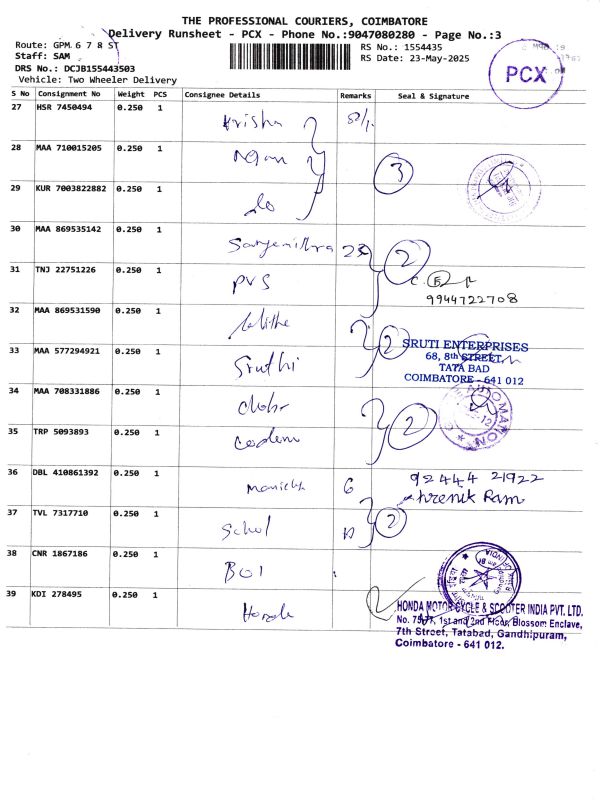 THE PROFESSIONAL COURIERS, COIMBATORE
Delivery Runsheet - PCX - Phone No.:9047080280 - Page No.:3
Route: GPM 6 7 8 ST
RS No.: 1554435
Staff: SAM
RS Date: 23-May-2025
DRS No.: DCJB155443503
Vehicle: Two Wheeler Delivery
PCX
S No Consignment No Weight PCS Consignee Details Remarks Seal & Signature
27 HSR 7450494 0.250 1 Krisha
28 MAA 710015205 0.250 1
3
29 KUR 7003822882 0.250 1
30 MAA 869535142 0.250 1
2
31 TNJ 22751226 0.250 1 PVS
9944722708
32 MAA 869531590 0.250 1 Lalithe
2
SRUTI ENTERPRISES
68, 8th STREET,
TATA BAD
COIMBATORE - 641 012
33 MAA 577294921 0.250 1 Sruthi
34 MAA 708331886 0.250 1
2
35 TRP 5093893 0.250 1
36 DBL 410861392 0.250 1 6
92444 21922
Shrenik Ram
37 TVL 7317710 0.250 1
2
38 CNR 1867186 0.250 1 BOI
39 KDI 278495 0.250 1 Honda
HONDA MOTORCYCLE & SCOOTER INDIA PVT. LTD.
1st and 2nd Floor, Blossom Enclave,
7th Street, Tatabad, Gandhipuram,
Coimbatore - 641 012.